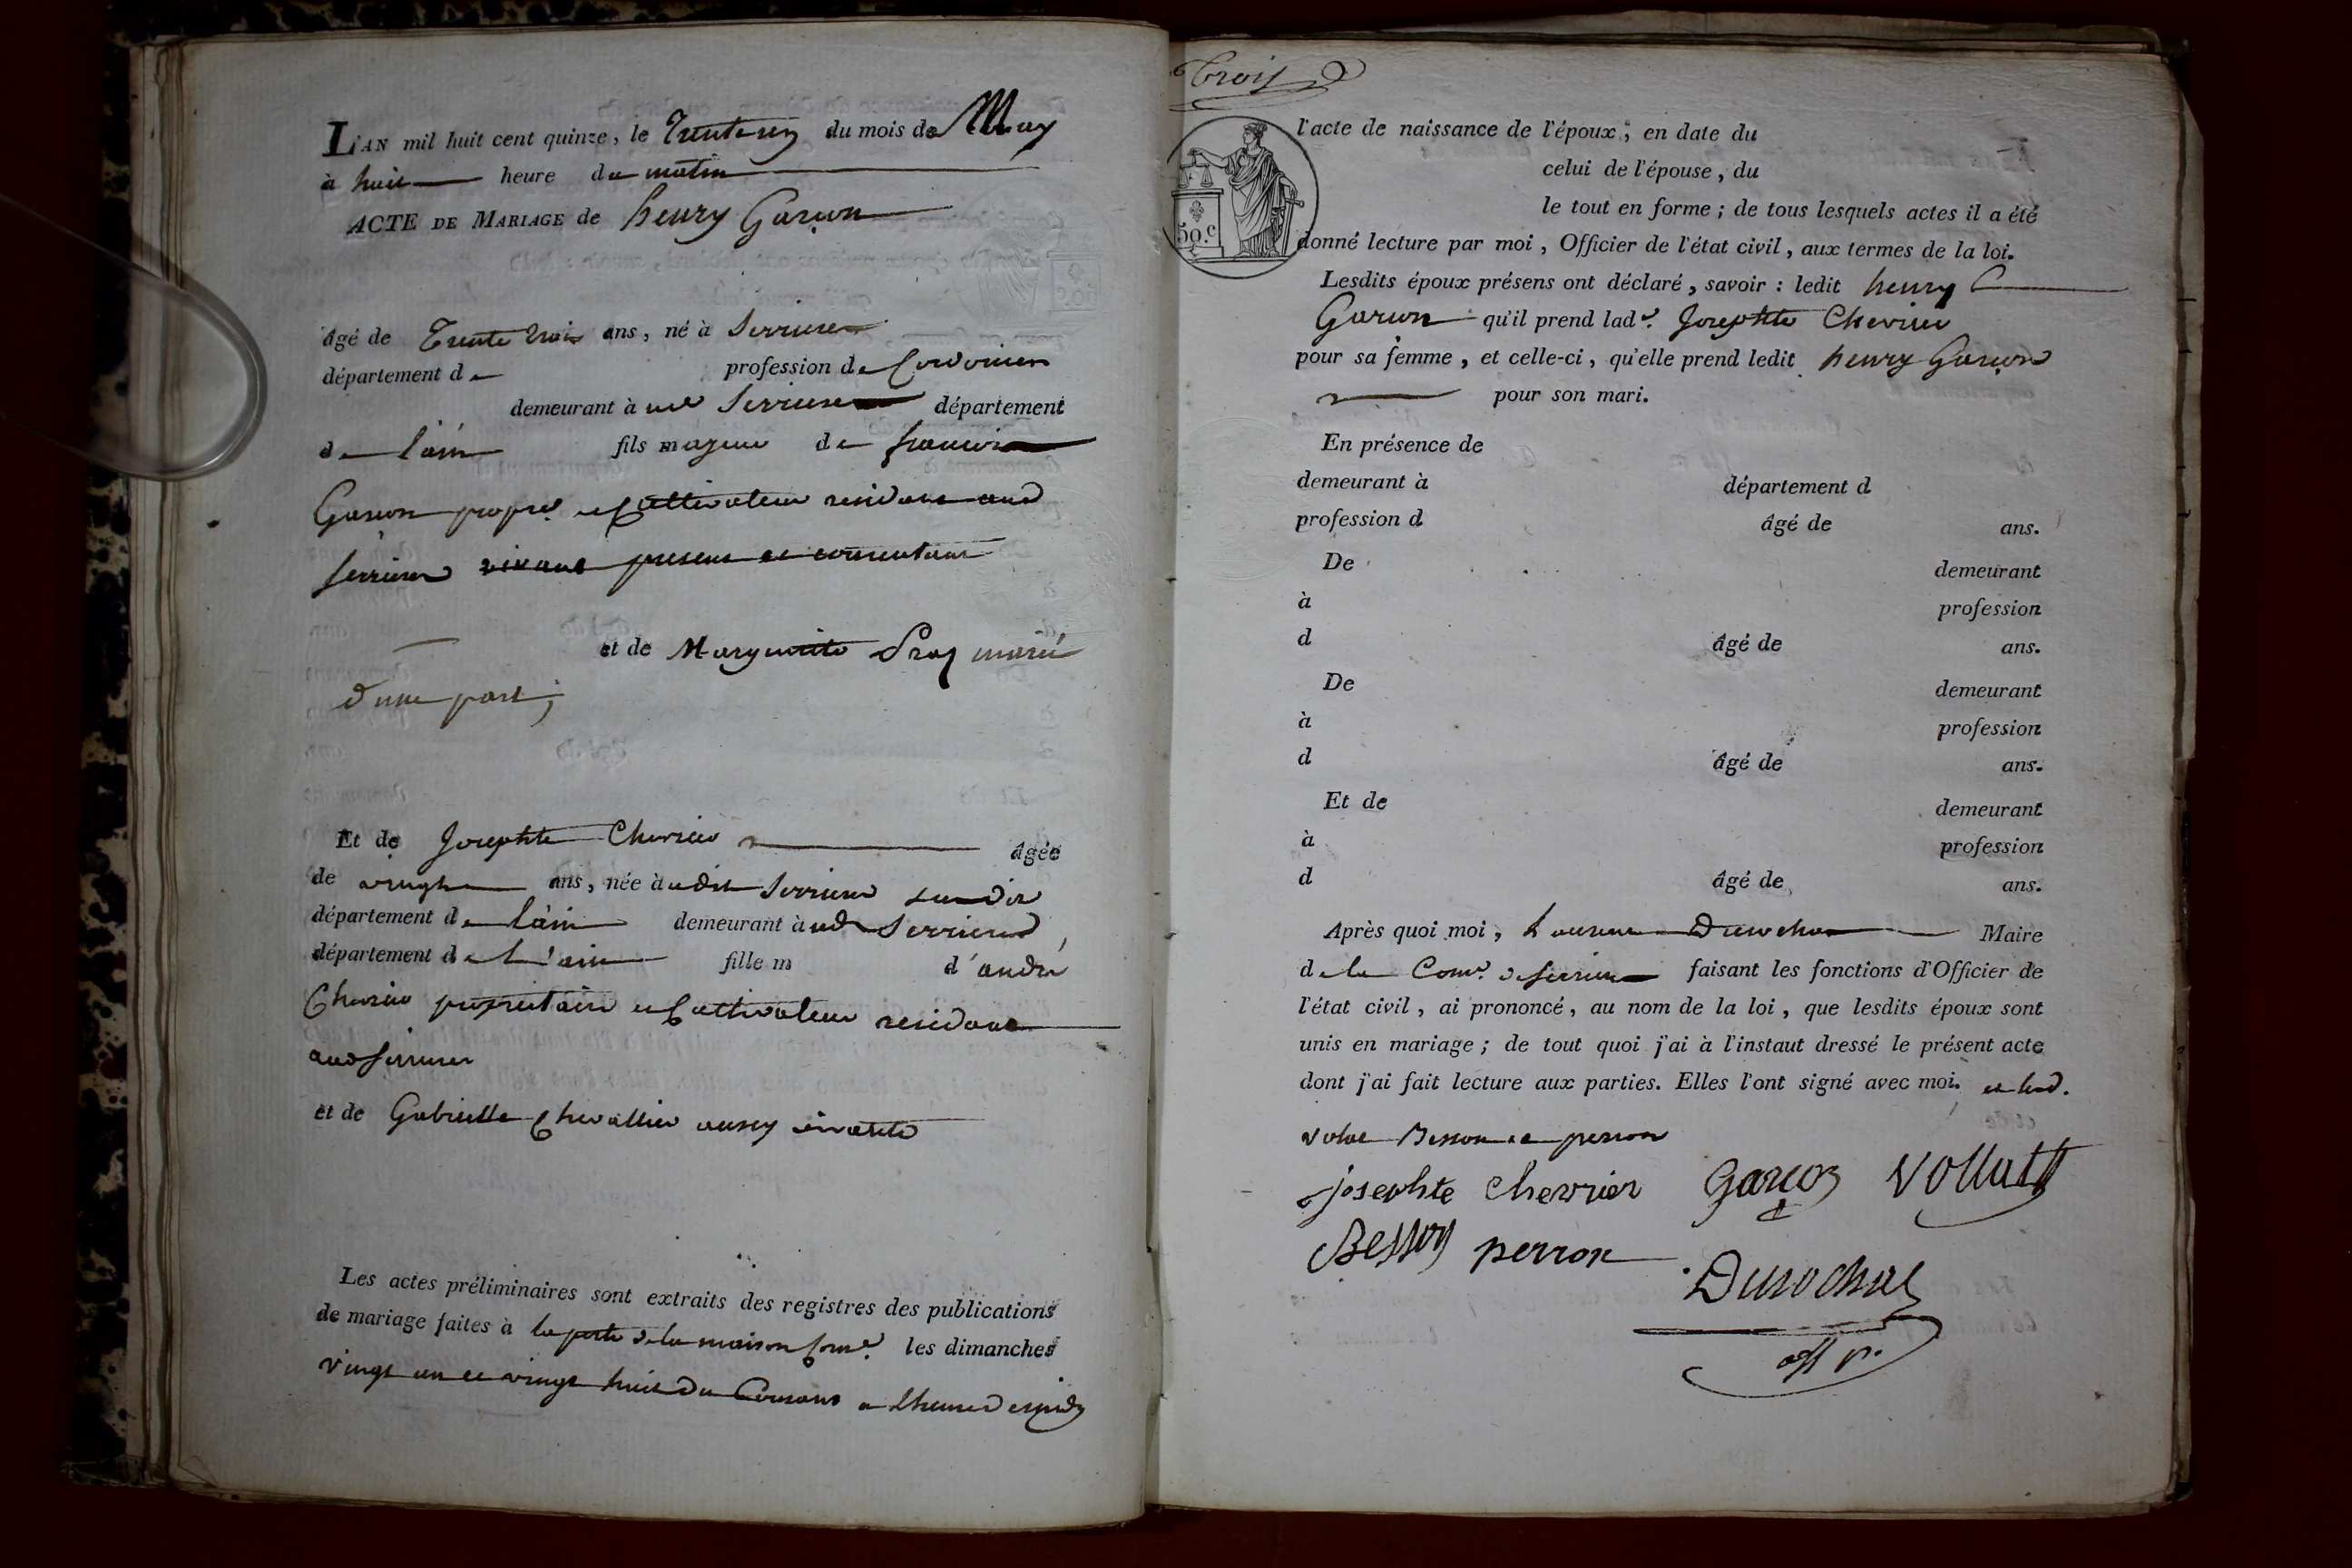 L'AN mil huit cent quinze, le Trente un du mois de May
à huit heure du matin
ACTE DE MARIAGE de henry Garçon
âgé de Trente trois ans, né à Serrieres
département de profession de Cordonier
demeurant à Serrieres département
de l'ain fils majeur de francois
Garçon propre et Cultivateur residant aud
Serrieres vivant present et consentant
et de Marguerite Pras marié
d'une part;
Et de Josephte Chevrier âgée
de vingt ans, née à udit Serrieres
département de l'ain demeurant à ud Serrieres,
département de l'ain fille m d'andré
Chevrier proprietaire et Cultivateur residant
aud Serrieres
et de Gabrielle Chevallier
Les actes préliminaires sont extraits des registres des publications
de mariage faites à la porte de la maison Come. les dimanches
vingt un et vingt huit du Courant a lheure de midy
Trois
l'acte de naissance de l'époux, en date du
celui de l'épouse, du
le tout en forme; de tous lesquels actes il a été
50.c
donné lecture par moi, Officier de l'état civil, aux termes de la loi.
Lesdits époux présens ont déclaré, savoir: ledit henry
Garçon qu'il prend lade. Josephte Chevrier
pour sa femme, et celle-ci, qu'elle prend ledit henry Garçon
pour son mari.
En présence de
demeurant à département d
profession d âgé de ans.
De demeurant
à profession
d âgé de ans.
De demeurant
à profession
d âgé de ans.
Et de demeurant
à profession
d âgé de ans.
Après quoi moi, Laurent Durochat Maire
de la Come. de Serrieres faisant les fonctions d'Officier de
l'état civil, ai prononcé, au nom de la loi, que lesdits époux sont
unis en mariage; de tout quoi j'ai à l'instaut dressé le présent acte
dont j'ai fait lecture aux parties. Elles l'ont signé avec moi. et led.
Volat Besson et perron
josephte chevrier Garçon Vollatt
Besson perron
Durochat